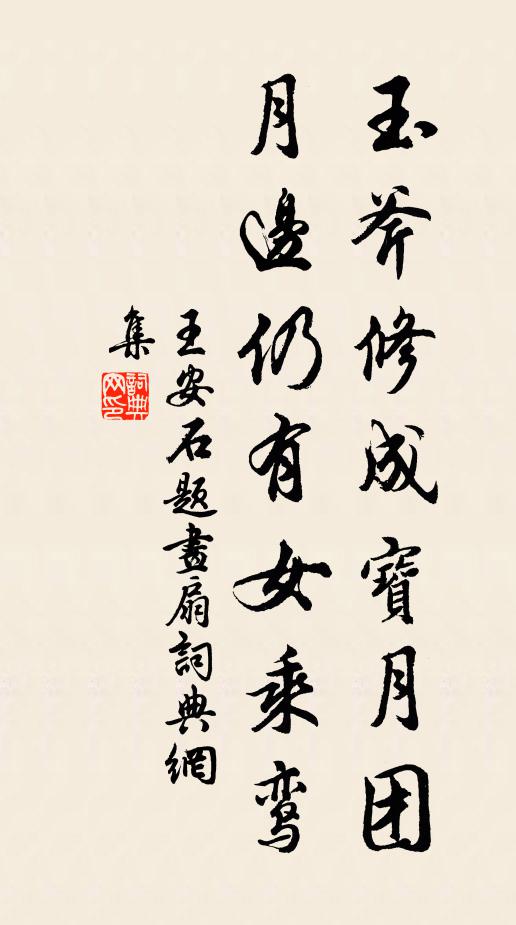 玉斧修成寶月团
月邊仍有女乘鸾
王安石题畫扇詞典網
集
詞典
网印